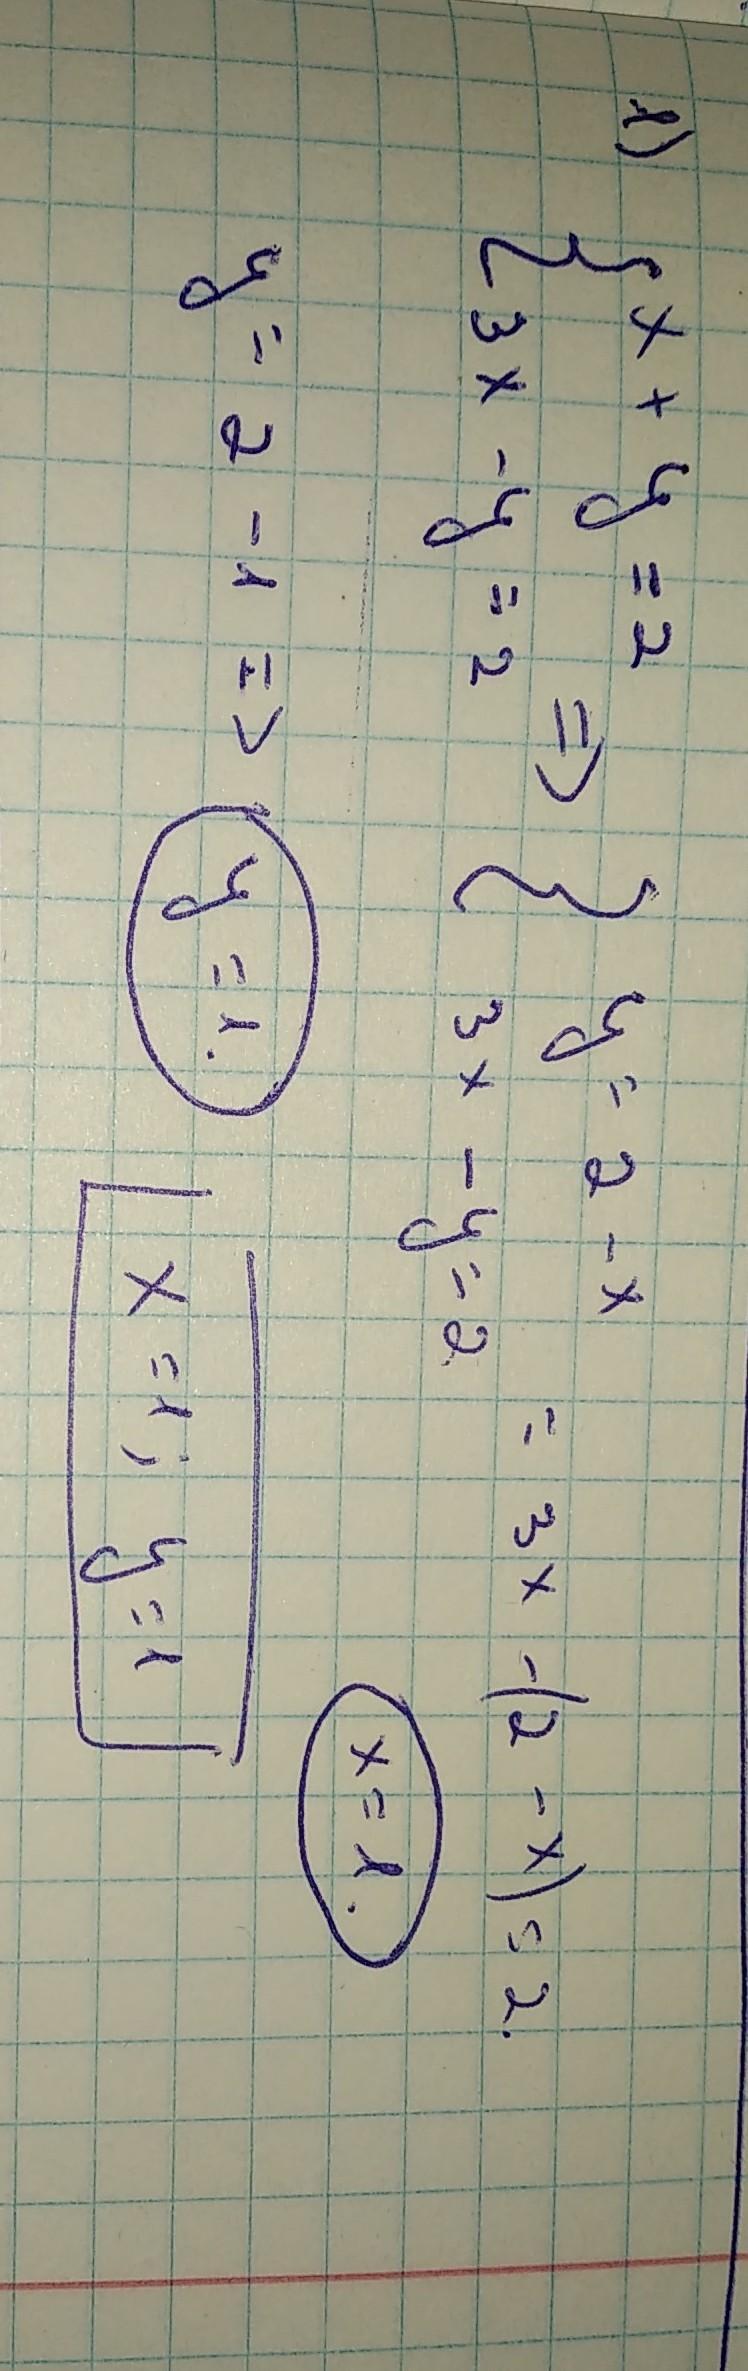 1)
{ x + y = 2 => { y = 2 - x
3x - y = 2 3x - y = 2 = 3x - (2 - x) = 2.
x = 1.
y = 2 - 1 => y = 1.
x = 1; y = 1